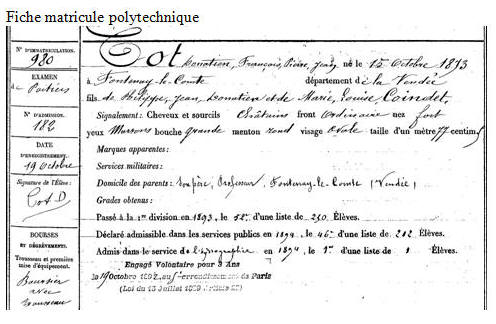 Fiche matricule polytechnique
N° D'IMMATRICULATION.
980
EXAMEN
de Poitiers
N° D'ADMISSION.
182
DATE
D'ENREGISTREMENT.
19 octobre
Signature de l'Élève:
Cot D
BOURSES
ET DÉGRÈVEMENTS.
Trousseau et première
mise d'équipement.
Boursier
avec
trousseau
Cot
Donatien, François, Pierre, né le 15 Octobre 1873
à Fontenay-le-Comte département de la Vendée
fils de Philippe, Jean, Donatien et de Marie, Louise Coindet,
Signalement: Cheveux et sourcils Châtains front Ordinaire nez fort
yeux Marrons bouche grande menton rond visage Ovale taille d'un mètre 77 centim
Marques apparentes:
Services militaires:
Domicile des parents: Professeur, Fontenay-le-Comte (Vendée)
Grades obtenus:
Passé à la 1re division en 1893, le 52e d'une liste de 230 Élèves.
Déclaré admissible dans les services publics en 1894, le 46e d'une liste de 212 Élèves.
Admis dans le service de l'hydrographie en 1894, le 1er d'une liste de 1 Élèves.
Engagé Volontaire pour 3 Ans
le 19 Octobre 1892, au de Paris
(Loi du 15 Juillet 1889 Article 28)